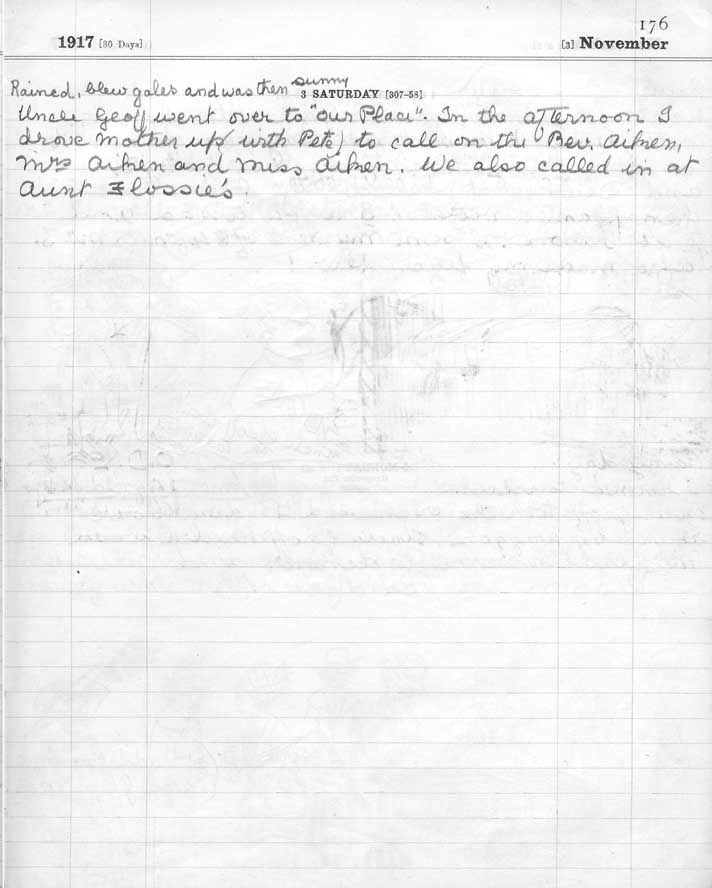 176
1917 [30 Days] [3] November
Rained, blew gales and was then sunny
3 SATURDAY [307-58]
Uncle Geoff went over to "Our Place". In the afternoon I
drove Mother up (with Pete) to call on the Rev. Aitken,
Mrs Aitken and Miss Aitken. We also called in at
Aunt Flossie's.